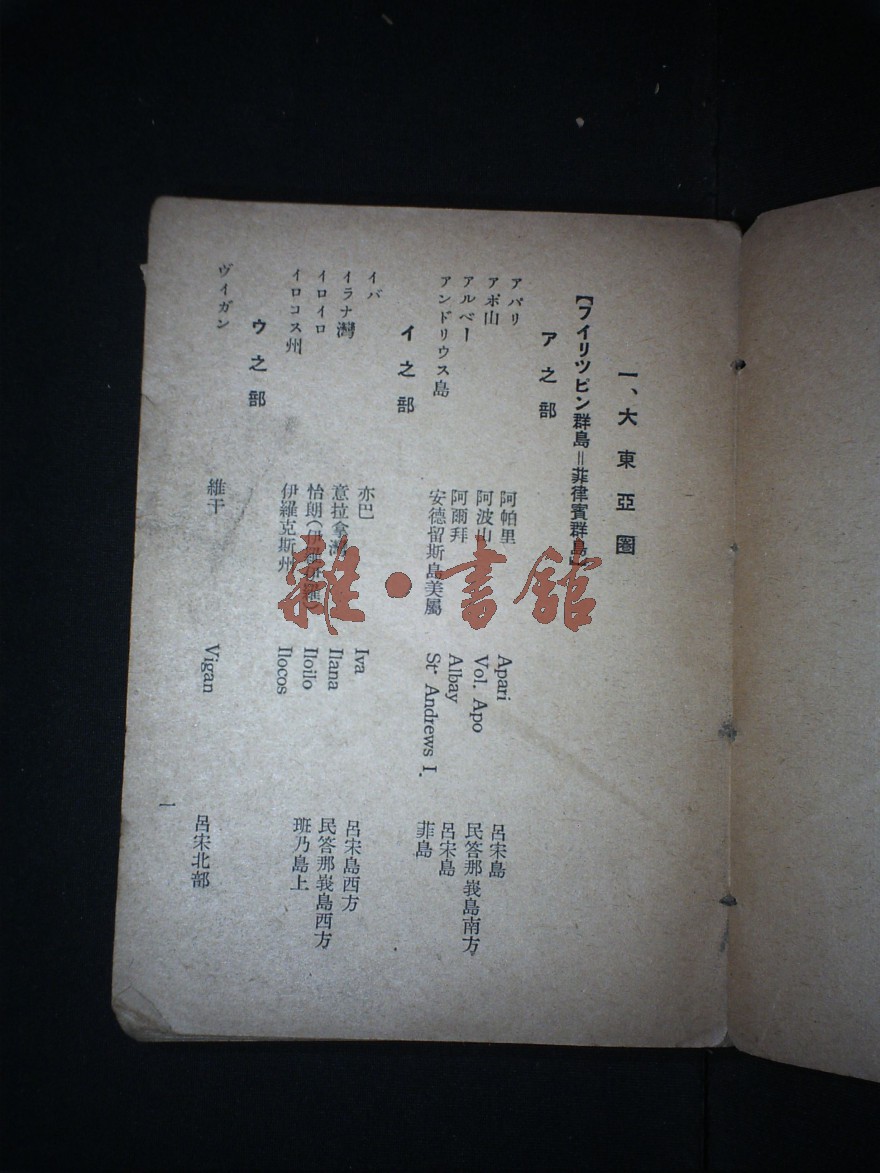 一、大東亞圈
【フイリツピン群島＝菲律賓群島】
ア之部
アパリ 阿帕里 Apari 呂宋島
アポ山 阿波山 Vol. Apo 民答那峩島南方
アルベー 阿爾拜 Albay 呂宋島
アンドリウス島 安德留斯島美屬 St Andrews I. 菲島
イ之部
イバ 亦巴 Iva 呂宋島西方
イラナ灣 意拉拿灣 Ilana 民答那峩島西方
イロイロ 怡朗(伊羅伊羅) Iloilo 班乃島上
イロコス州 伊羅克斯州 Ilocos
ウ之部
ヴイガン 維干 Vigan 呂宋北部
一
雜·書館